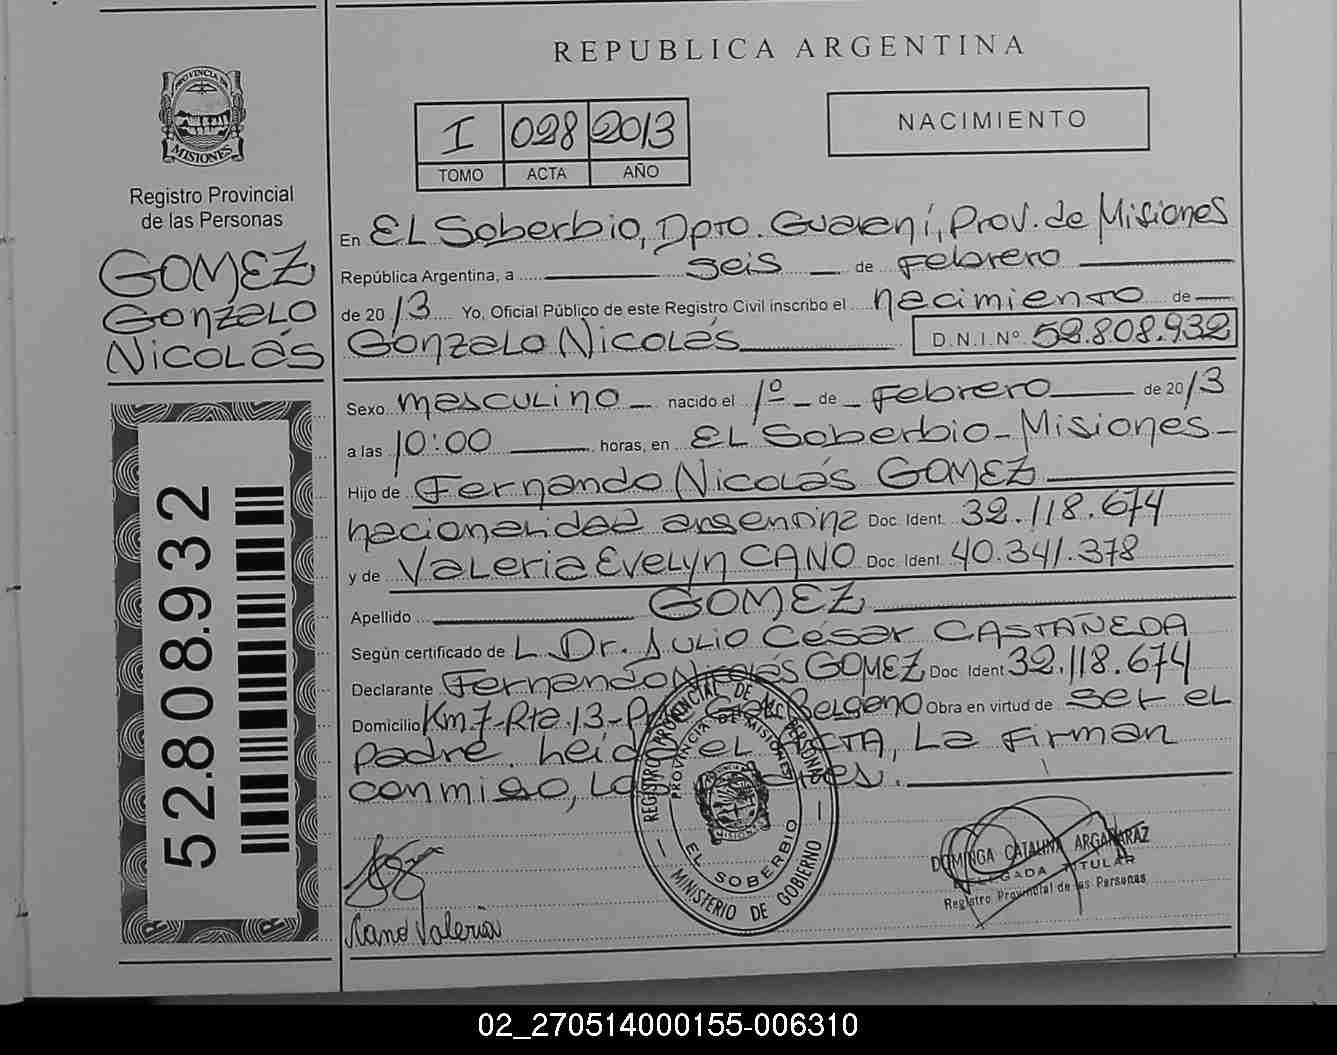 REPUBLICA ARGENTINA
PROVINCIA DE
MISIONES
Registro Provincial
de las Personas
GOMEZ
Gonzalo
Nicolás
52.808.932
I 028 2013
TOMO ACTA AÑO
NACIMIENTO
En El Soberbio, Dpto. Guaraní, Prov. de Misiones
República Argentina, a seis de Febrero
de 2013 Yo, Oficial Público de este Registro Civil inscribo el nacimiento de
Gonzalo Nicolás D.N.I. Nº 52.808.932
Sexo masculino nacido el 1º de Febrero de 2013
a las 10:00 horas, en El Soberbio - Misiones -
Hijo de Fernando Nicolás GOMEZ
nacionalidad argentina Doc. Ident. 32.118.674
y de Valeria Evelyn CANO Doc. Ident. 40.341.378
Apellido GOMEZ
Según certificado de L Dr. Julio César CASTAÑEDA
Declarante Fernando Nicolás GOMEZ Doc Ident 32.118.674
Domicilio Km 7-Rta.13- Gral Belgrano Obra en virtud de ser el
padre. Leída el ACTA, La firman
conmigo, Los padres.
REGISTRO PROVINCIAL DE LAS PERSONAS
PROVINCIA DE MISIONES
MISIONES
EL SOBERBIO
MINISTERIO DE GOBIERNO
Cano Valeria
DOMINGA CATALINA ARGAÑARAZ
DELEGADA TITULAR
Registro Provincial de las Personas
02_270514000155-006310